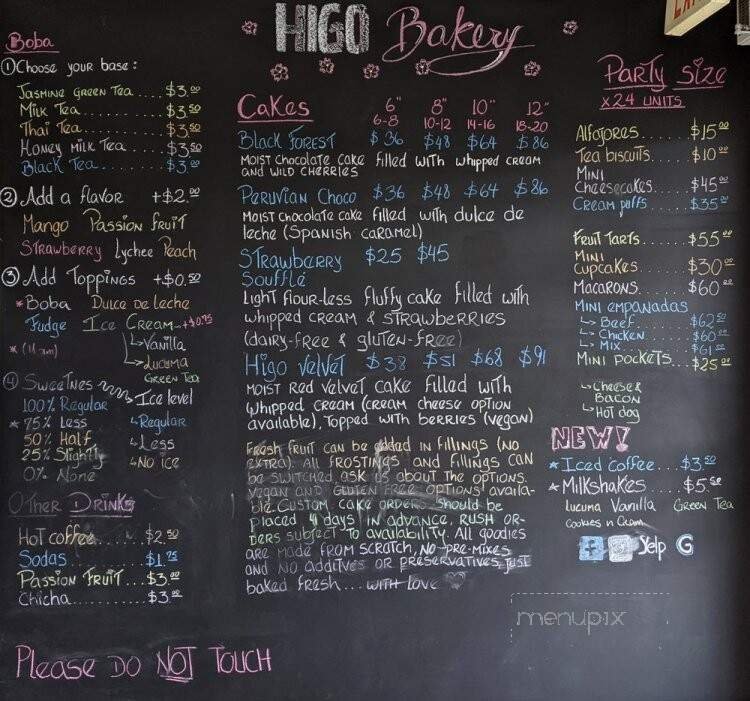 HIGO Bakery
Boba
① Choose your base:
Jasmine Green Tea.... $3.00
Milk Tea......... $3.50
Thai Tea......... $3.50
Honey Milk Tea... $3.50
Black Tea........ $3.00
② Add a flavor +$2.00
Mango Passion fruit
Strawberry Lychee Peach
③ Add Toppings +$0.50
*Boba Dulce de leche
Fudge Ice Cream +$0.75
* (11am) ↳Vanilla
↳Lucuma
Green Tea
④ Sweetnes Ice level
100% Regular
* 75% Less ↳Regular
50% Half ↳Less
25% Slightly ↳No ice
0% None
Other Drinks
Hot coffee....... $2.50
Sodas............ $1.75
Passion Fruit.... $3.00
Chicha........... $3.00
Please DO NOT TOUCH
Cakes 6" 8" 10" 12"
6-8 10-12 14-16 18-20
Black Forest $36 $48 $64 $86
Moist chocolate cake filled with whipped cream
and wild cherries
Peruvian Choco $36 $48 $64 $86
Moist chocolate cake filled with dulce de
leche (Spanish caramel)
Strawberry $25 $45
Soufflé
Light flour-less fluffy cake filled with
whipped cream & strawberries
(dairy-free & gluten-free)
Higo Velvet $38 $51 $68 $91
Moist red velvet cake filled with
whipped cream (cream cheese option
available), topped with berries (vegan)
Fresh fruit can be added in fillings (no
extra). All frostings and fillings can
be switched ask us about the options.
Vegan and gluten free options availa-
ble. Custom cake orders should be
placed 4 days in advance, rush or-
ders subject to availability. All goodies
are made from scratch, no pre-mixes
and no additives or preservatives just
baked fresh... with love
Party Size
x24 units
Alfajores....... $15.00
Tea biscuits.... $10.00
Mini
Cheesecakes.... $45.00
Cream puffs.... $35.00
Fruit Tarts..... $55.00
Mini
Cupcakes....... $30.00
Macarons....... $60.00
Mini empanadas
↳ Beef........ $62.50
↳ Chicken..... $60.00
↳ Mix......... $61.00
Mini pockets.... $25.00
↳Cheese &
Bacon
↳Hot dog
NEW!
*Iced coffee.... $3.50
*Milkshakes..... $5.50
Lucuma Vanilla Green Tea
Cookies n Cream
f Yelp G
menupix